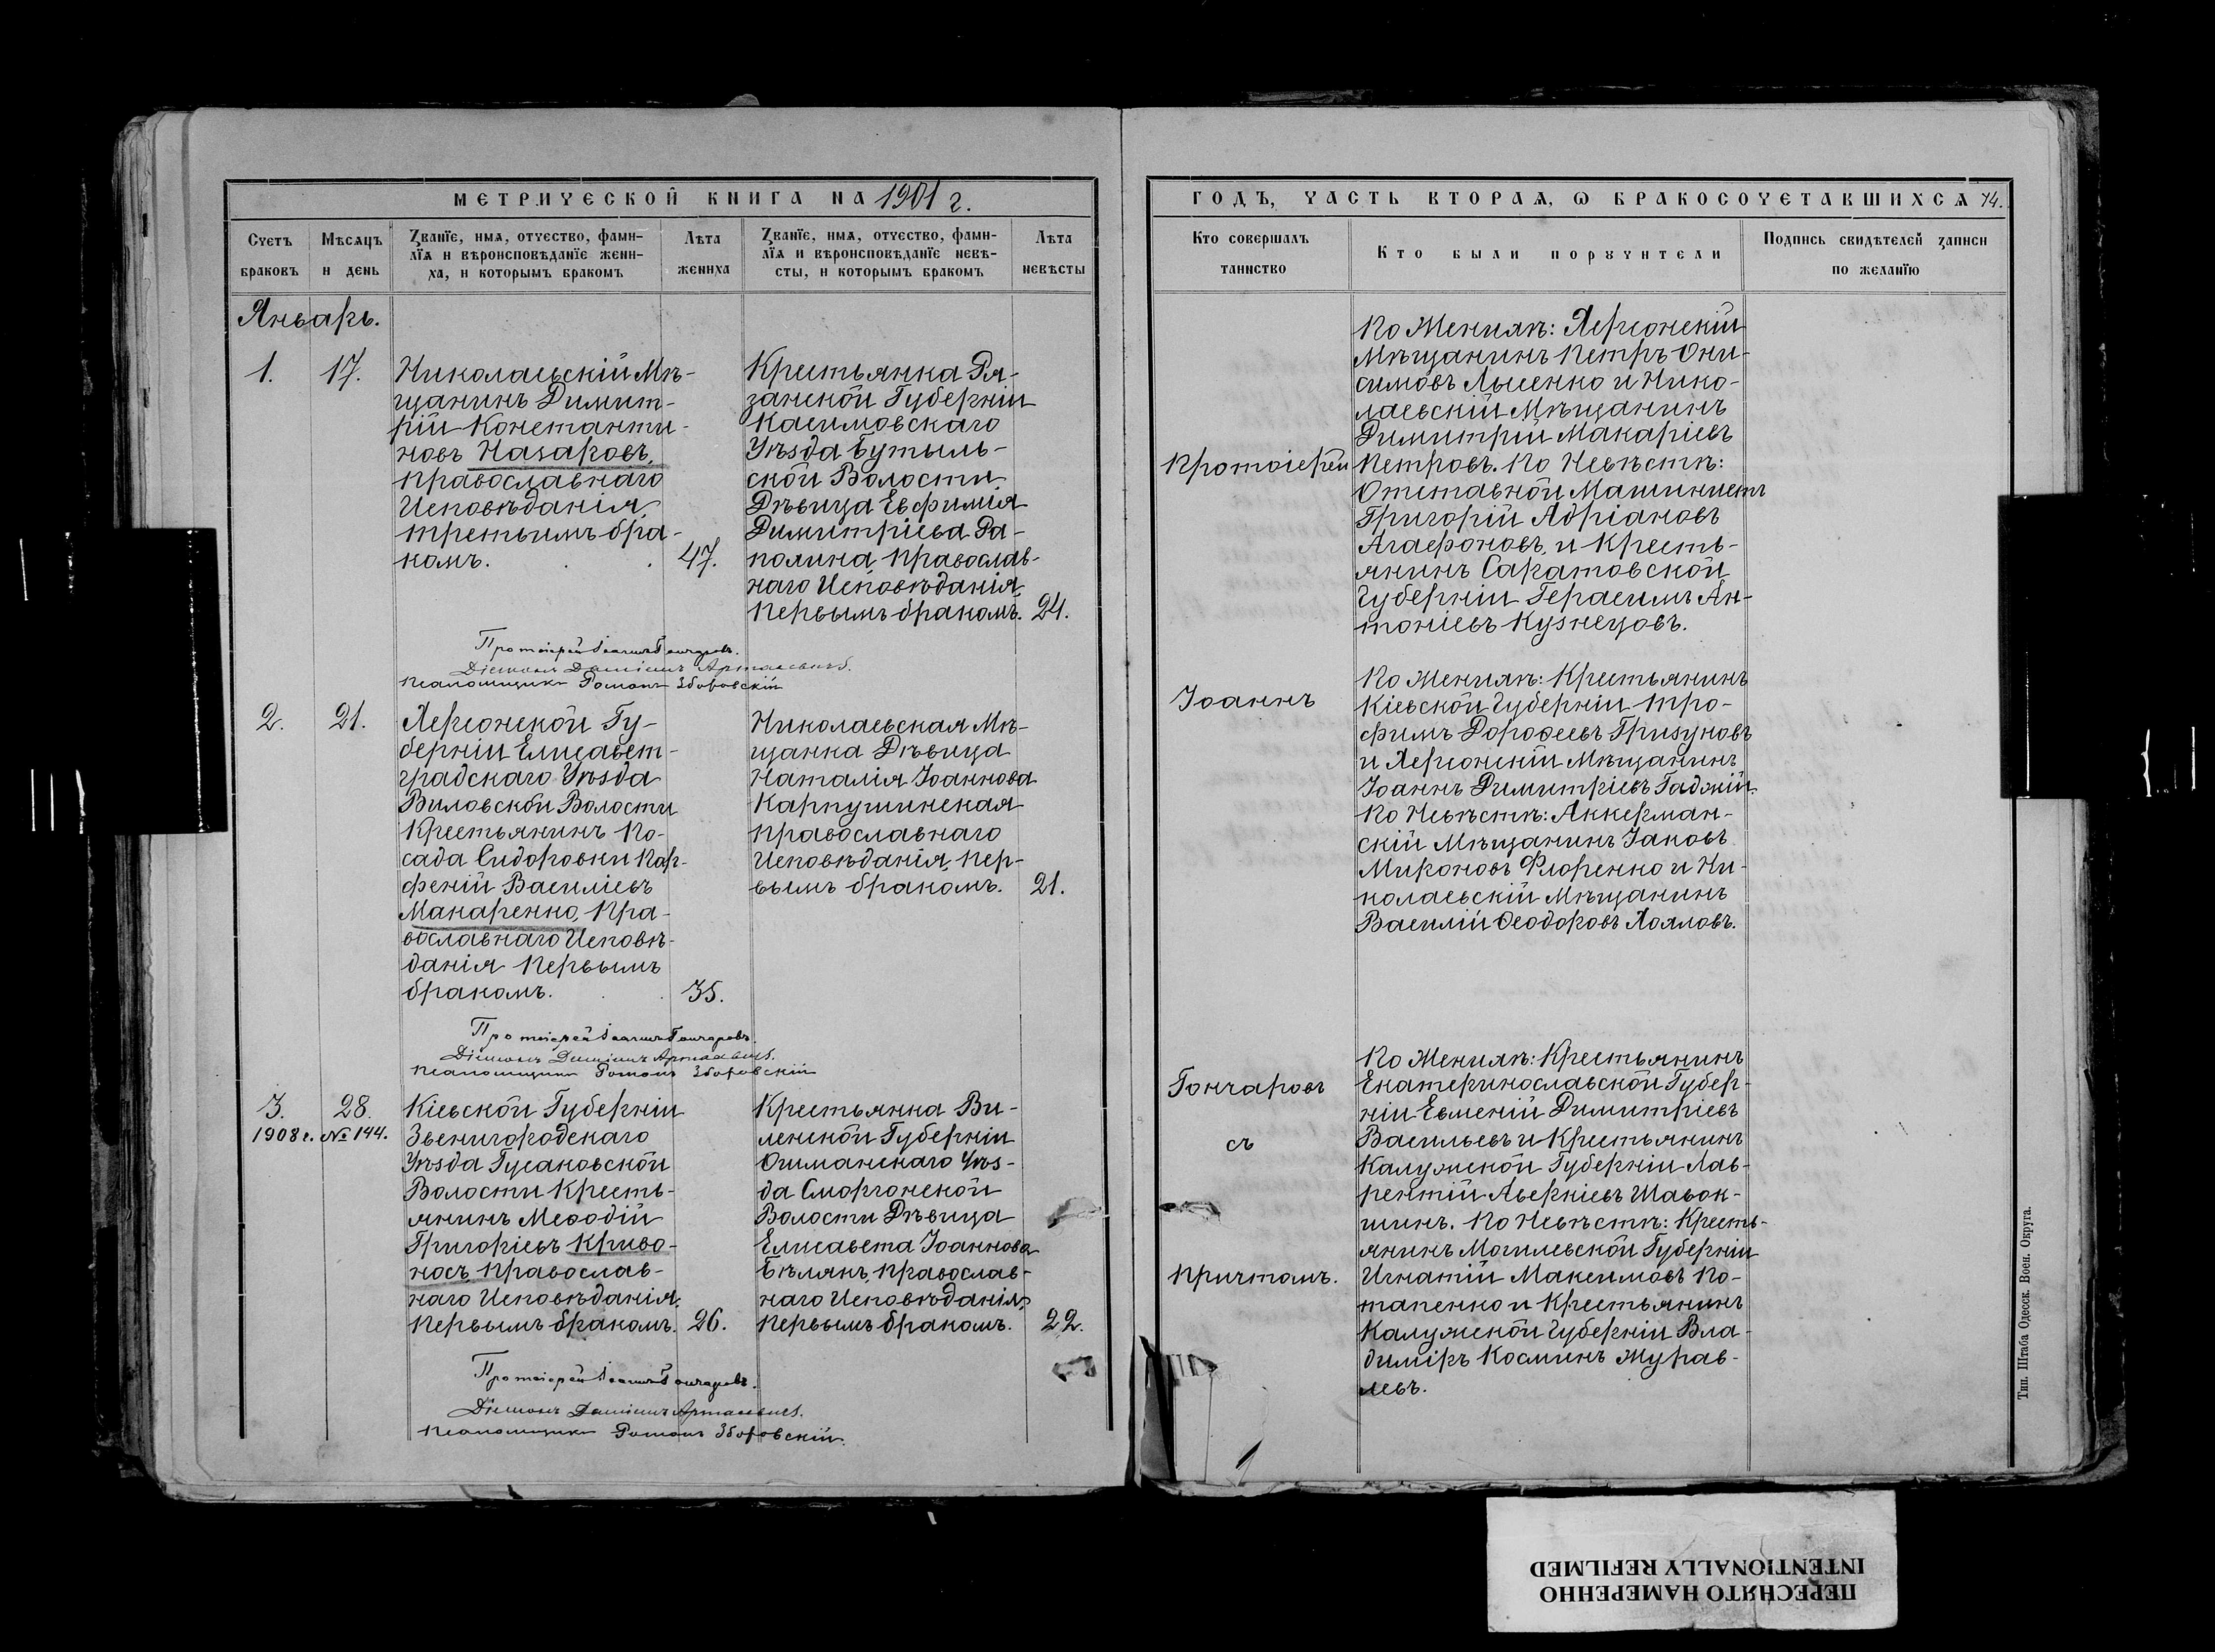 МЕТРИЧЕСКОЙ КНИГА НА 1901 г.
Счетъ браковъ
Мѣсяцъ и день
Званїе, имѧ, отчество, фами-
лїѧ и вѣроисповѣданїе жени-
ха, и которымъ бракомъ
Лѣта жениха
Званїе, имѧ, отчество, фами-
лїѧ и вѣроисповѣданїе невѣ-
сты, и которымъ бракомъ
Лѣта невѣсты
Январь.
1.
17.
Николаевскій Мѣ-
щанинъ Димит-
рій Константи-
новъ Назаровъ,
Православнаго
Исповѣданія,
третьимъ бра-
комъ.
47.
Крестьянка Ря-
занской Губерніи
Касимовскаго
Уѣзда Бутыль-
ской Волости
Дѣвица Евфимія
Димитріева Ра-
полина, Православ-
наго Исповѣданія,
Первымъ бракомъ.
24.
Протоіерей Іоаннъ Гончаровъ.
Діаконъ Даміанъ Артасевичъ.
Псаломщикъ Романъ Зборовскій
2.
21.
Херсонской Гу-
берніи Елисавет-
градскаго Уѣзда
Виловской Волости
Крестьянинъ По-
сада Сидоровки Пар-
феній Василіевъ
Макаренко, Пра-
вославнаго Исповѣ-
данія Первымъ
бракомъ.
35.
Николаевская Мѣ-
щанка Дѣвица
Наталія Іоаннова
Карпушинская
Православнаго
Исповѣданія, Пер-
вымъ бракомъ.
21.
Протоіерей Іоаннъ Гончаровъ.
Діаконъ Даміанъ Артасевичъ.
Псаломщикъ Романъ Зборовскій
3.
28.
1908 г. № 144.
Кіевской Губерніи
Звенигородскаго
Уѣзда Гусаковской
Волости Кресть-
янинъ Меѳодій
Григоріевъ Криво-
носъ, Православ-
наго Исповѣданія,
Первымъ бракомъ.
26.
Крестьянка Ви-
ленской Губерніи
Ошманскаго Уѣз-
да Сморгонской
Волости Дѣвица
Елисавета Іоаннова
Бѣлянъ, Православ-
наго Исповѣданія,
Первымъ бракомъ.
22.
Протоіерей Іоаннъ Гончаровъ.
Діаконъ Даміанъ Артасевичъ.
Псаломщикъ Романъ Зборовскій.
ГОДЪ, ЧАСТЬ ВТОРАѦ, Ѡ БРАКОСОЧЕТАВШИХСѦ 74.
Кто совершалъ таинство
Кто были порꙋчители
Подпись свидѣтелей записи
по желанїю
Протоіерей
Іоаннъ
Гончаровъ
съ
Причтомъ.
По Женихѣ: Херсонскій
Мѣщанинъ Петръ Они-
симовъ Лысенко и Нико-
лаевскій Мѣщанинъ
Димитрій Макаріевъ
Петровъ. По Невѣстѣ:
Отставной Машинистъ
Григорій Адріановъ
Агафоновъ, и Кресть-
янинъ Саратовской
Губерніи Герасимъ Ан-
тоніевъ Кузнецовъ.
По Женихѣ: Крестьянинъ
Кіевской Губерніи Тро-
фимъ Дороѳеевъ Гризуновъ
и Херсонскій Мѣщанинъ
Іоаннъ Димитріевъ Гаджій.
По Невѣстѣ: Аккерман-
скій Мѣщанинъ Іаковъ
Мироновъ Флоренко и Ни-
колаевскій Мѣщанинъ
Василій Ѳеодоровъ Хохловъ.
По Женихѣ: Крестьянинъ
Екатеринославской Губер-
ніи Евменій Димитріевъ
Васильевъ и Крестьянинъ
Калужской Губерніи Лав-
рентій Аверкіевъ Шавок-
шинъ. По Невѣстѣ: Кресть-
янинъ Могилевской Губерніи
Игнатій Максимовъ По-
тапенко и Крестьянинъ
Калужской Губерніи Вла-
диміръ Косминъ Журав-
левъ.
Тип. Штаба Одесск. Воен. Округа.
ПЕРЕСНЯТО НАМЕРЕННО
INTENTIONALLY REFILMED